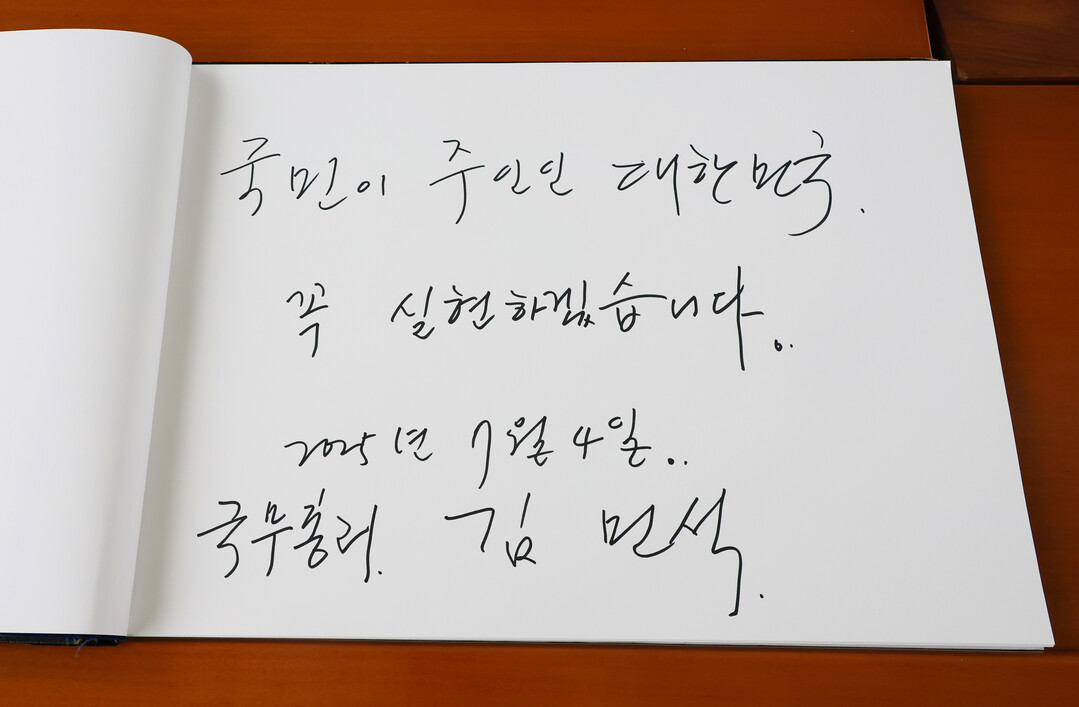 국민이 주인인 대한민국.
꼭 실현하겠습니다.
2025년 7월 4일..
국무총리. 김 민석.